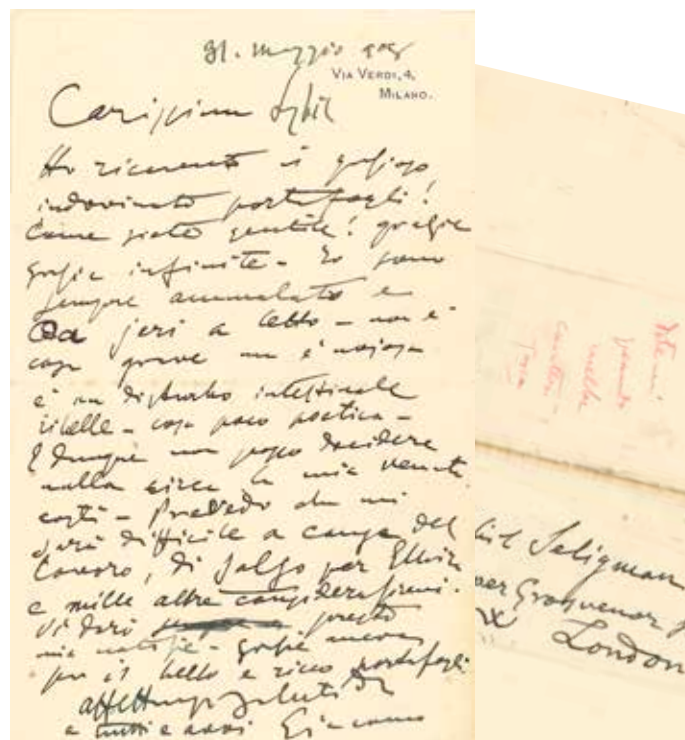 31. maggio 905
VIA VERDI, 4,
MILANO.
Carissima Sybil
Ho ricevuto il grazioso
indovinato portafogli!
Come siete gentile! grazie
grazie infinite – Io sono
sempre ammalato e
da jeri a letto – non è
cosa grave ma è nojosa
è un disturbo intestinale
ribelle – cosa poco poetica –
E dunque non posso decidere
nulla circa la mia venuta
costì – Prevedo che mi
sarà difficile a causa del
lavoro, di Salso per Elvira
e mille altre considerazioni.
Vi darò presto
mie notizie – grazie ancora
per il bello e ricco portafogli
affettuosi saluti
a tutti e a voi Giacomo
nella
Seligman
Upper Grosvenor
London